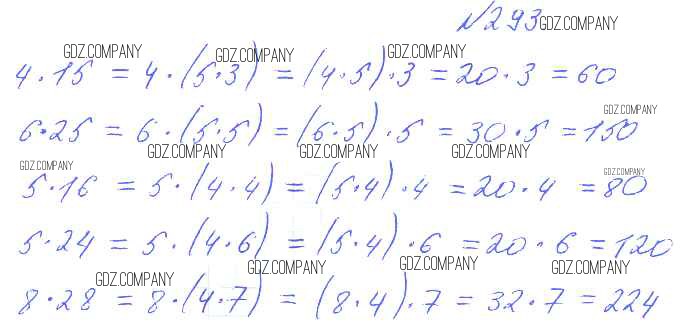 №293 GDZ.COMPANY
GDZ.COMPANY GDZ.COMPANY GDZ.COMPANY
4·15 = 4·(5·3) = (4·5)·3 = 20·3 = 60
GDZ.COMPANY
6·25 = 6·(5·5) = (6·5)·5 = 30·5 = 150
GDZ.COMPANY GDZ.COMPANY GDZ.COMPANY GDZ.COMPANY GDZ.COMPANY
5·16 = 5·(4·4) = (5·4)·4 = 20·4 = 80
5·24 = 5·(4·6) = (5·4)·6 = 20·6 = 120
GDZ.COMPANY GDZ.COMPANY GDZ.COMPANY GDZ.COMPANY
8·28 = 8·(4·7) = (8·4)·7 = 32·7 = 224